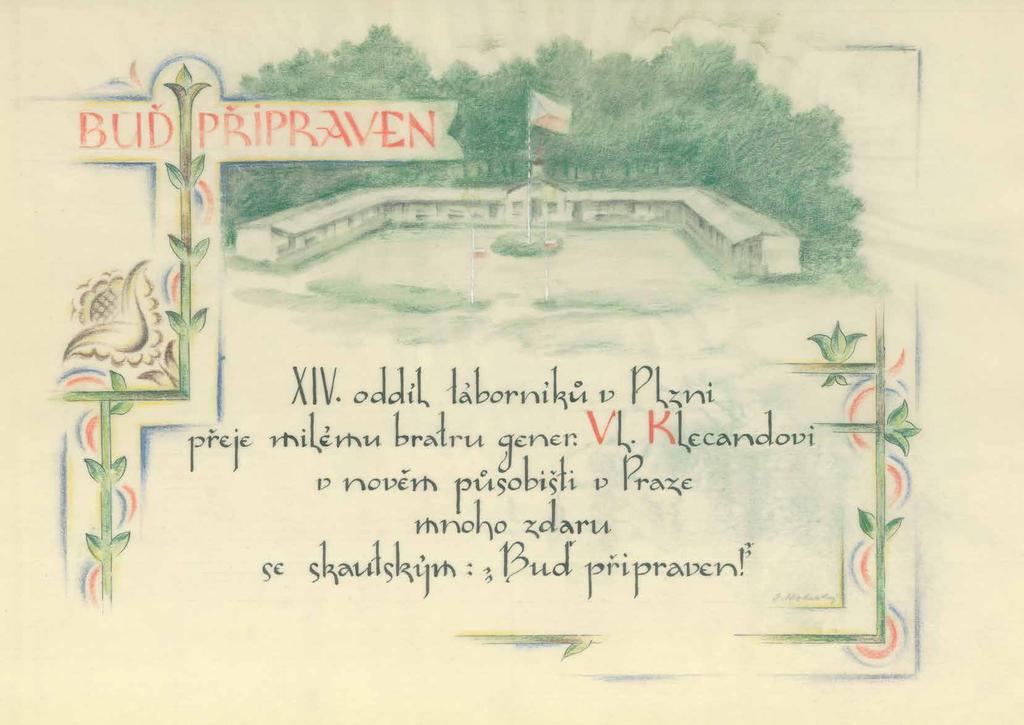 BUĎ PŘIPRAVEN
XIV. oddíl táborníků v Plzni
přeje milému bratru gener. Vl. Klecandovi
v novém působišti v Praze
mnoho zdaru
se skautským: „Buď připraven!"